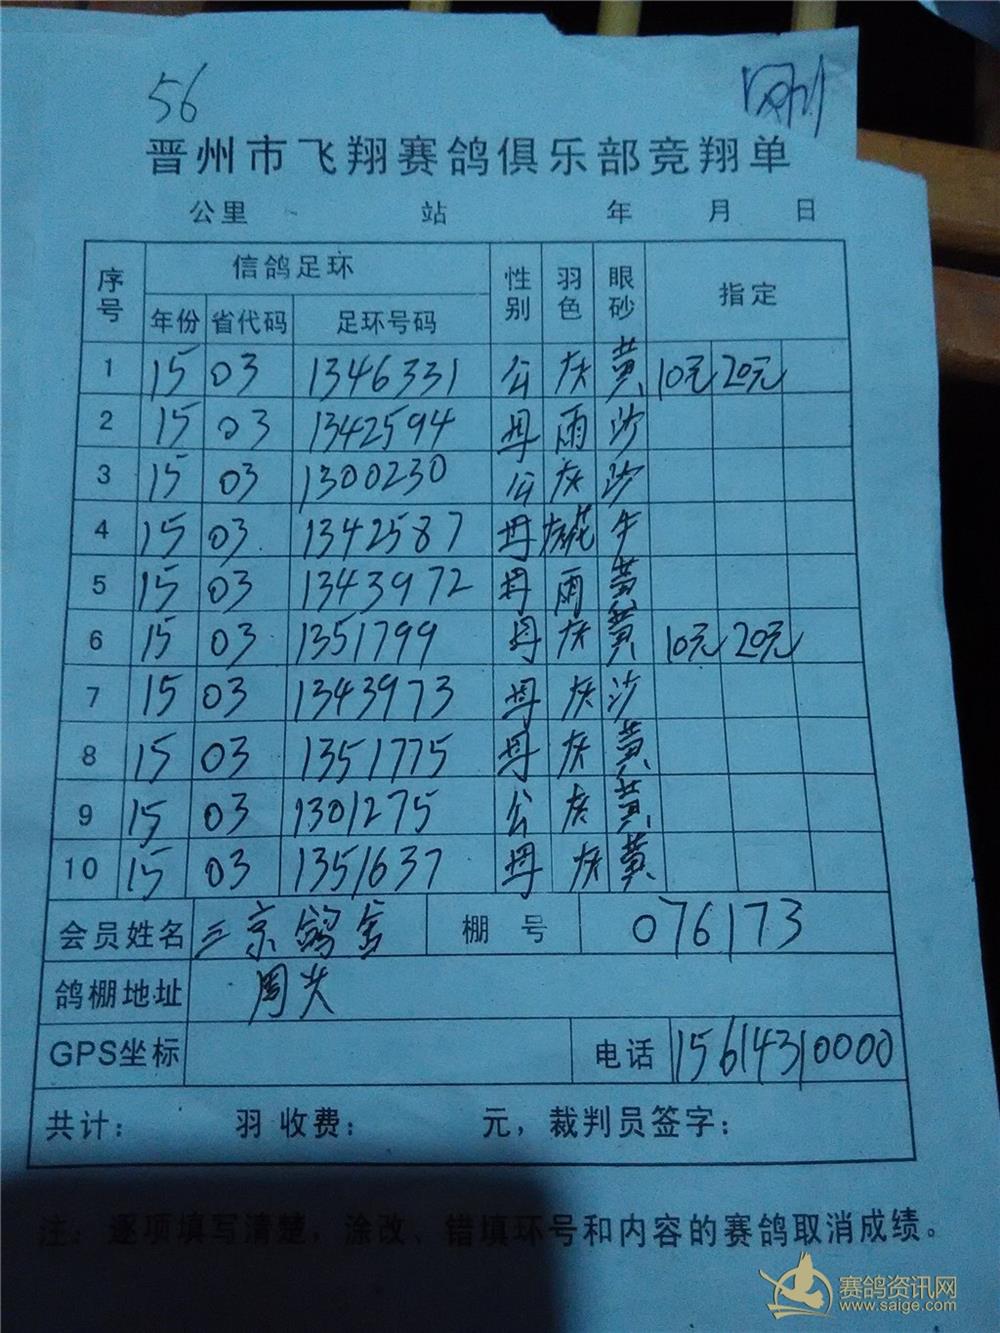 56 刚
晋州市飞翔赛鸽俱乐部竞翔单
公里 站 年 月 日
序号 信鸽足环 性别 羽色 眼砂 指定
年份 省代码 足环号码
1 15 03 1346331 公 灰 黄 10元 20元
2 15 03 1342594 母 雨 沙
3 15 03 1300230 公 灰 沙
4 15 03 1342587 母 灰花 牛
5 15 03 1343972 母 雨 黄
6 15 03 1351799 母 灰 黄 10元 20元
7 15 03 1343973 母 灰 沙
8 15 03 1351775 母 灰 黄
9 15 03 1301275 公 灰 黄
10 15 03 1351637 母 灰 黄
会员姓名 三京鸽舍 棚号 076173
鸽棚地址 周头
GPS坐标 电话 15614310000
共计： 羽 收费： 元，裁判员签字：
注：逐项填写清楚，涂改、错填环号和内容的赛鸽取消成绩。
赛鸽资讯网
www.saige.com